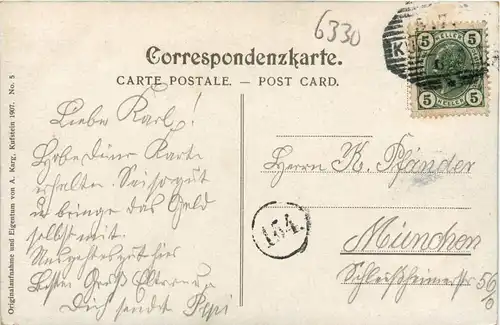 6330
Correspondenzkarte.
CARTE POSTALE. — POST CARD.
5 HELLER 5
5 HELLER 5
Lieber Karl!
Habe Deine Karte
erhalten. Sei so gut
u bringe das Geld
selbst mit.
Besten Gruß Eltern u
Dich sendet Pepi
Herrn K. Pfänder
München
Schleißheimerstr 56
154.
Originalaufnahme und Eigentum von A. Karg, Kufstein 1907. No. 5